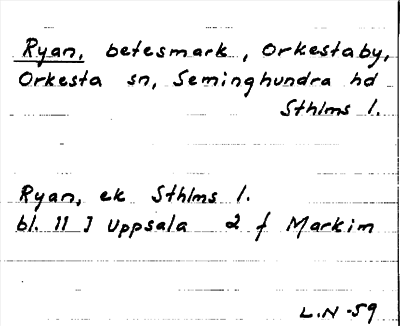 Ryan, betesmark, Orkestaby,
Orkesta sn, Seminghundra hd
Sthlms l.
Ryan, ek Sthlms l.
bl. 11 J Uppsala 2 f Markim
L.N -59